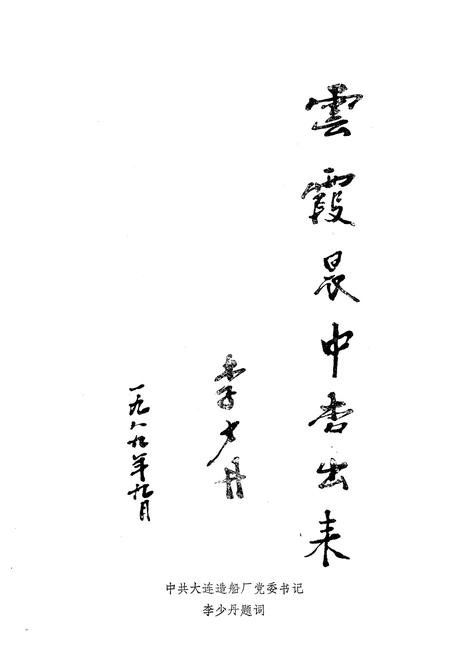 雲霞晨中杳出来
李少丹
一九八九年九月
中共大连造船厂党委书记
李少丹题词